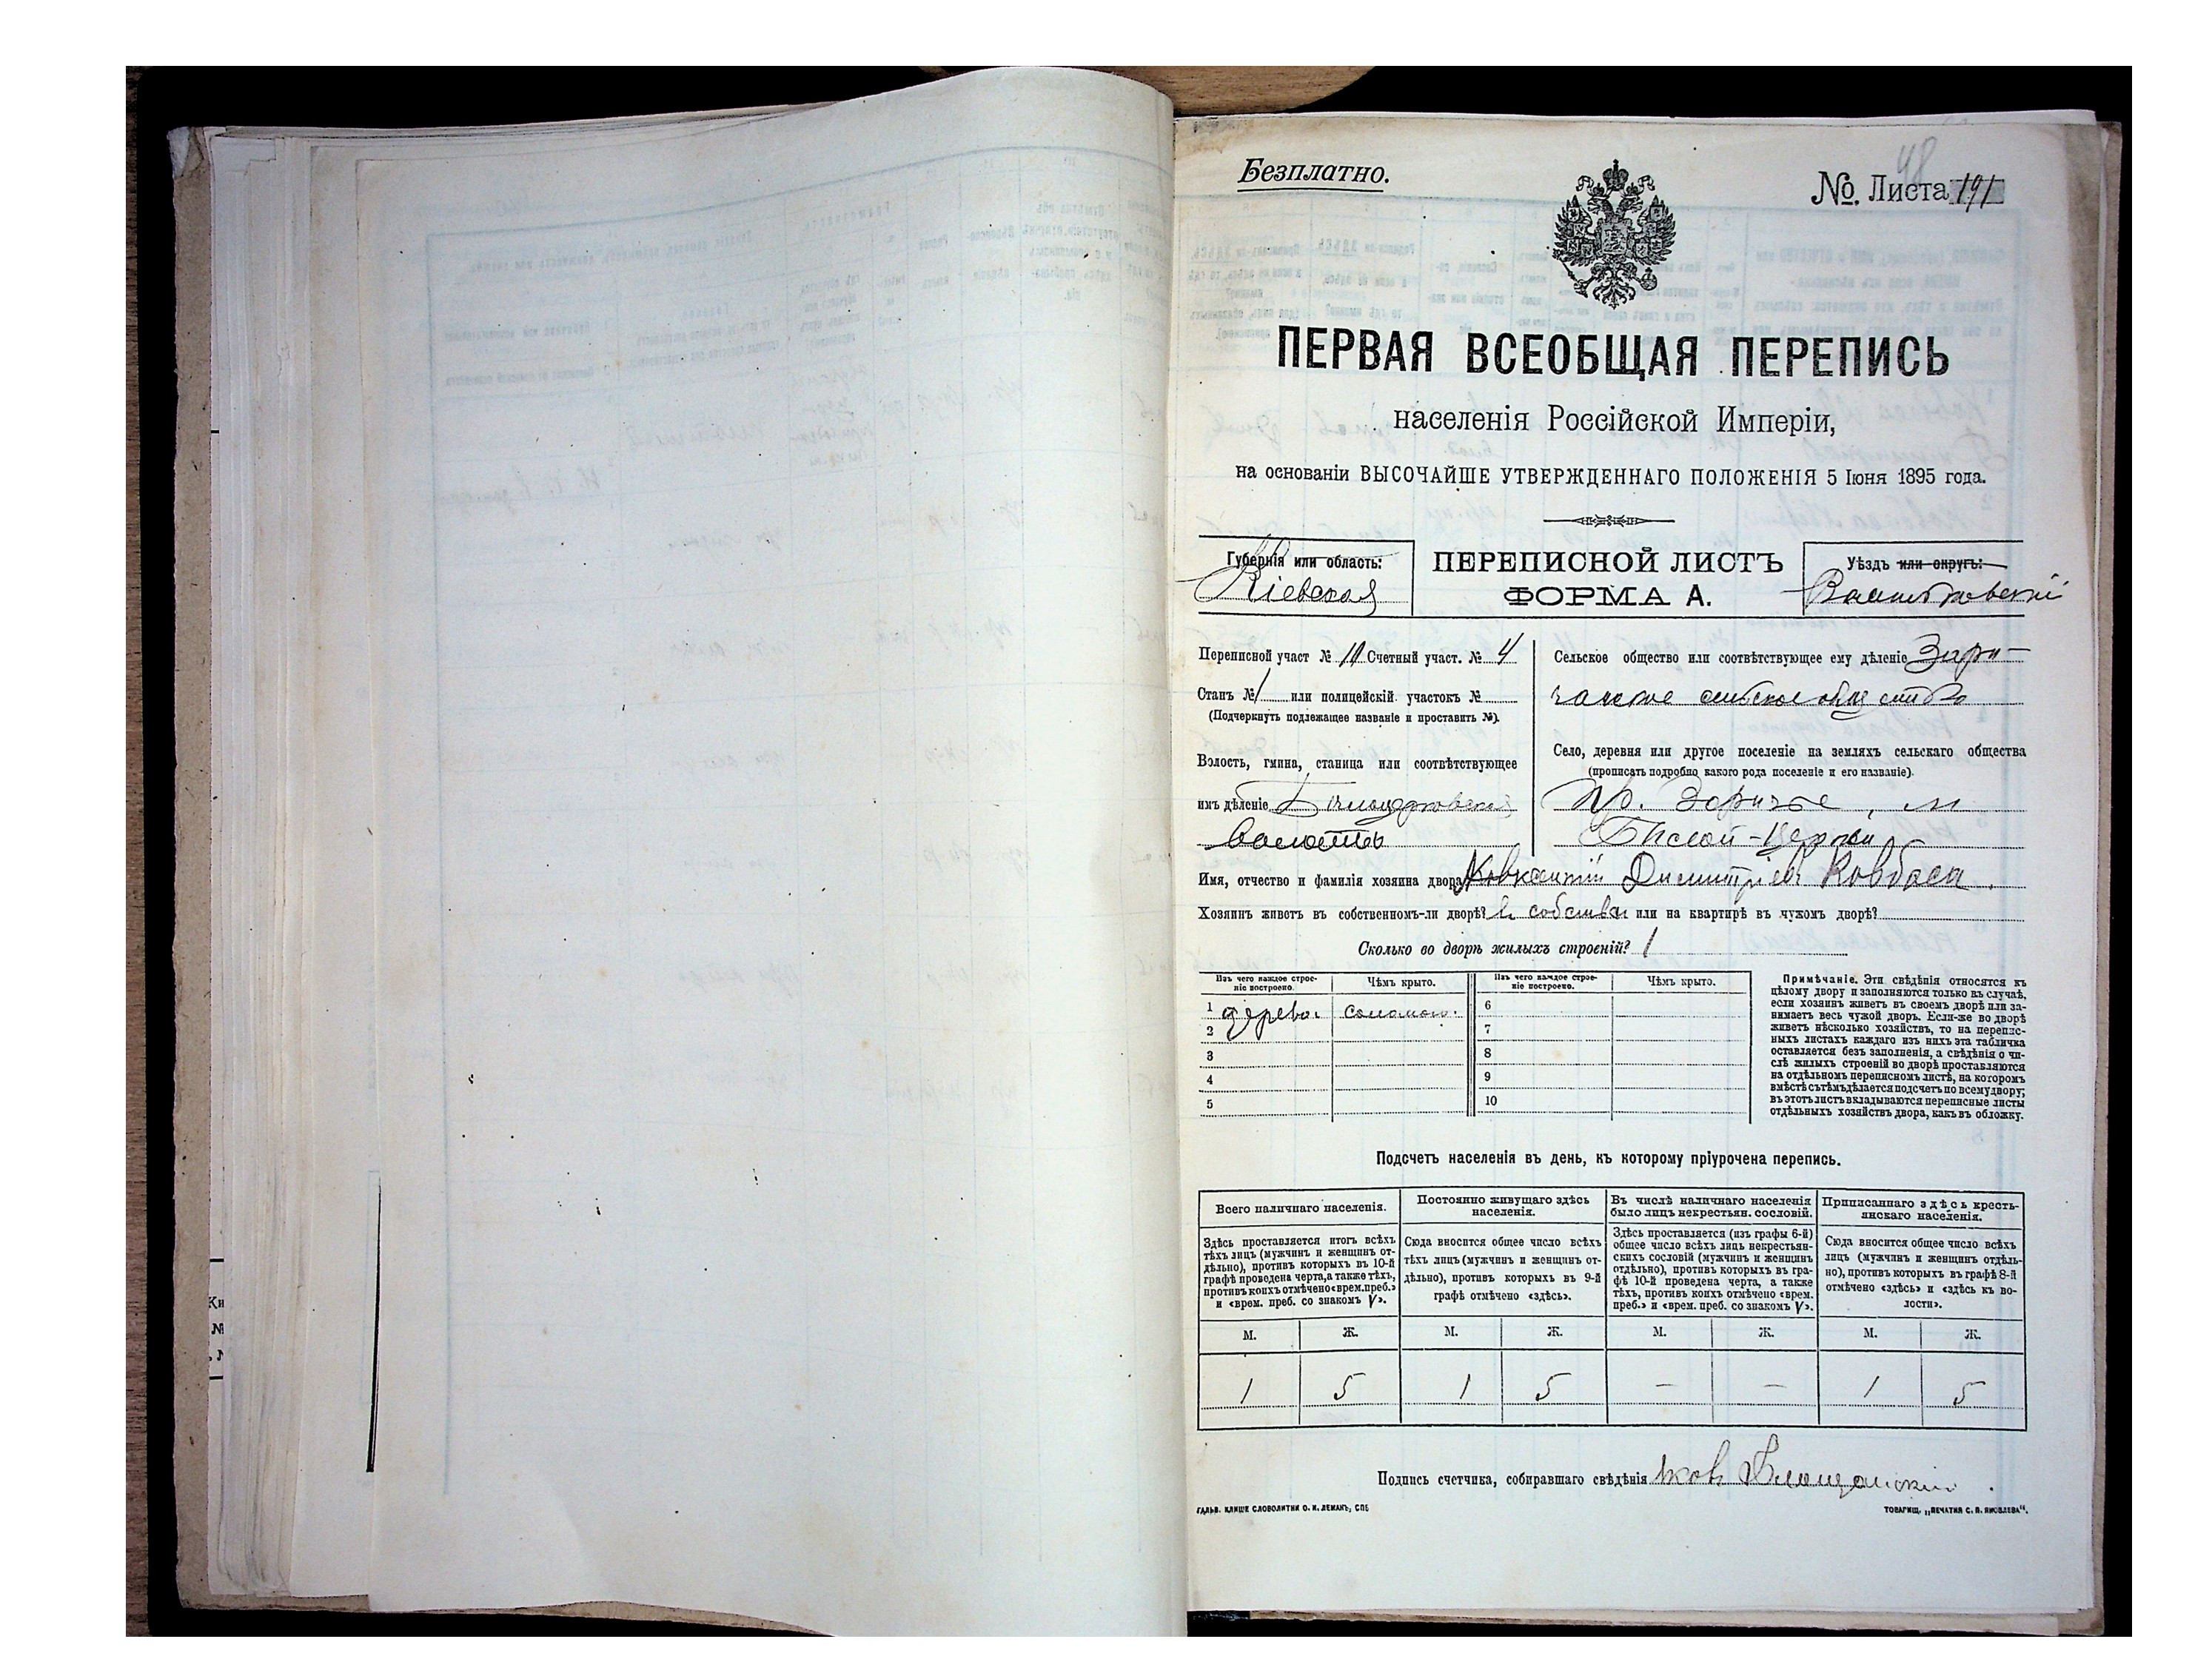 48
Безплатно.
№. Листа 191
ПЕРВАЯ ВСЕОБЩАЯ ПЕРЕПИСЬ
населенія Россійской Имперіи,
на основаніи ВЫСОЧАЙШЕ УТВЕРЖДЕННАГО ПОЛОЖЕНІЯ 5 Іюня 1895 года.
Губернія или область:
Кіевская
ПЕРЕПИСНОЙ ЛИСТЪ
ФОРМА А.
Уѣздъ или округъ:
Васильковскій
Переписной участ № 10 Счетный участ. № 4
Станъ № 1 или полицейскій участокъ №
(Подчеркнуть подлежащее названіе и проставить №).
Волость, гмина, станица или соотвѣтствующее
имъ дѣленіе Бѣлоцерковская
волость
Сельское общество или соотвѣтствующее ему дѣленіе Зарѣ-
чанское сельское общество
Село, деревня или другое поселеніе на земляхъ сельскаго общества
(прописать подробно какого рода поселеніе и его названіе).
пр. Зарѣчье, м
Бѣлой-Церкви
Имя, отчество и фамилія хозяина двора Димитріевъ Ковбаса.
Хозяинъ живетъ въ собственномъ-ли дворѣ? въ собствен или на квартирѣ въ чужомъ дворѣ?
Сколько во дворѣ жилыхъ строеній? 1
Изъ чего каждое строе-
ніе построено.
Чѣмъ крыто.
Изъ чего каждое строе-
ніе построено.
Чѣмъ крыто.
1 дерева. соломою. 6
2 7
3 8
4 9
5 10
Примѣчаніе. Эти свѣдѣнія относятся къ
цѣлому двору и заполняются только въ случаѣ,
если хозяинъ живетъ въ своемъ дворѣ или за-
нимаетъ весь чужой дворъ. Если-же во дворѣ
живетъ нѣсколько хозяйствъ, то на перепис-
ныхъ листахъ каждаго изъ нихъ эта табличка
оставляется безъ заполненія, а свѣдѣнія о чи-
слѣ жилыхъ строеній во дворѣ проставляются
на отдѣльномъ переписномъ листѣ, на которомъ
вмѣстѣ съ тѣмъ дѣлается подсчетъ по всему двору;
въ этотъ листъ вкладываются переписные листы
отдѣльныхъ хозяйствъ двора, какъ въ обложку.
Подсчетъ населенія въ день, къ которому пріурочена перепись.
Всего наличнаго населенія.
Здѣсь проставляется итогъ всѣхъ
тѣхъ лицъ (мужчинъ и женщинъ от-
дѣльно), противъ которыхъ въ 10-й
графѣ проведена черта, а также тѣхъ,
противъ коихъ отмѣчено «врем. преб.»
и «врем. преб. со знакомъ V».
Постоянно живущаго здѣсь
населенія.
Сюда вносится общее число всѣхъ
тѣхъ лицъ (мужчинъ и женщинъ от-
дѣльно), противъ которыхъ въ 9-й
графѣ отмѣчено «здѣсь».
Въ числѣ наличнаго населенія
было лицъ некрестьян. сословій.
Здѣсь проставляется (изъ графы 6-й)
общее число всѣхъ лицъ некрестьян-
скихъ сословій (мужчинъ и женщинъ
отдѣльно), противъ которыхъ въ гра-
фѣ 10-й проведена черта, а также
тѣхъ, противъ коихъ отмѣчено «врем.
преб.» и «врем. преб. со знакомъ V».
Приписаннаго здѣсь кресть-
янскаго населенія.
Сюда вносится общее число всѣхъ
лицъ (мужчинъ и женщинъ отдѣль-
но), противъ которыхъ въ графѣ 8-й
отмѣчено «здѣсь» и «здѣсь къ во-
лости».
М. Ж. М. Ж. М. Ж. М. Ж.
1 5 1 5 — — 1 5
Подпись счетчика, собиравшаго свѣдѣнія
ГАЛЬВ. КЛИШЕ СЛОВОЛИТНИ О. И. ЛЕМАНЪ, СПБ
ТОВАРИЩ. „ПЕЧАТНЯ С. П. ЯКОВЛЕВА“.